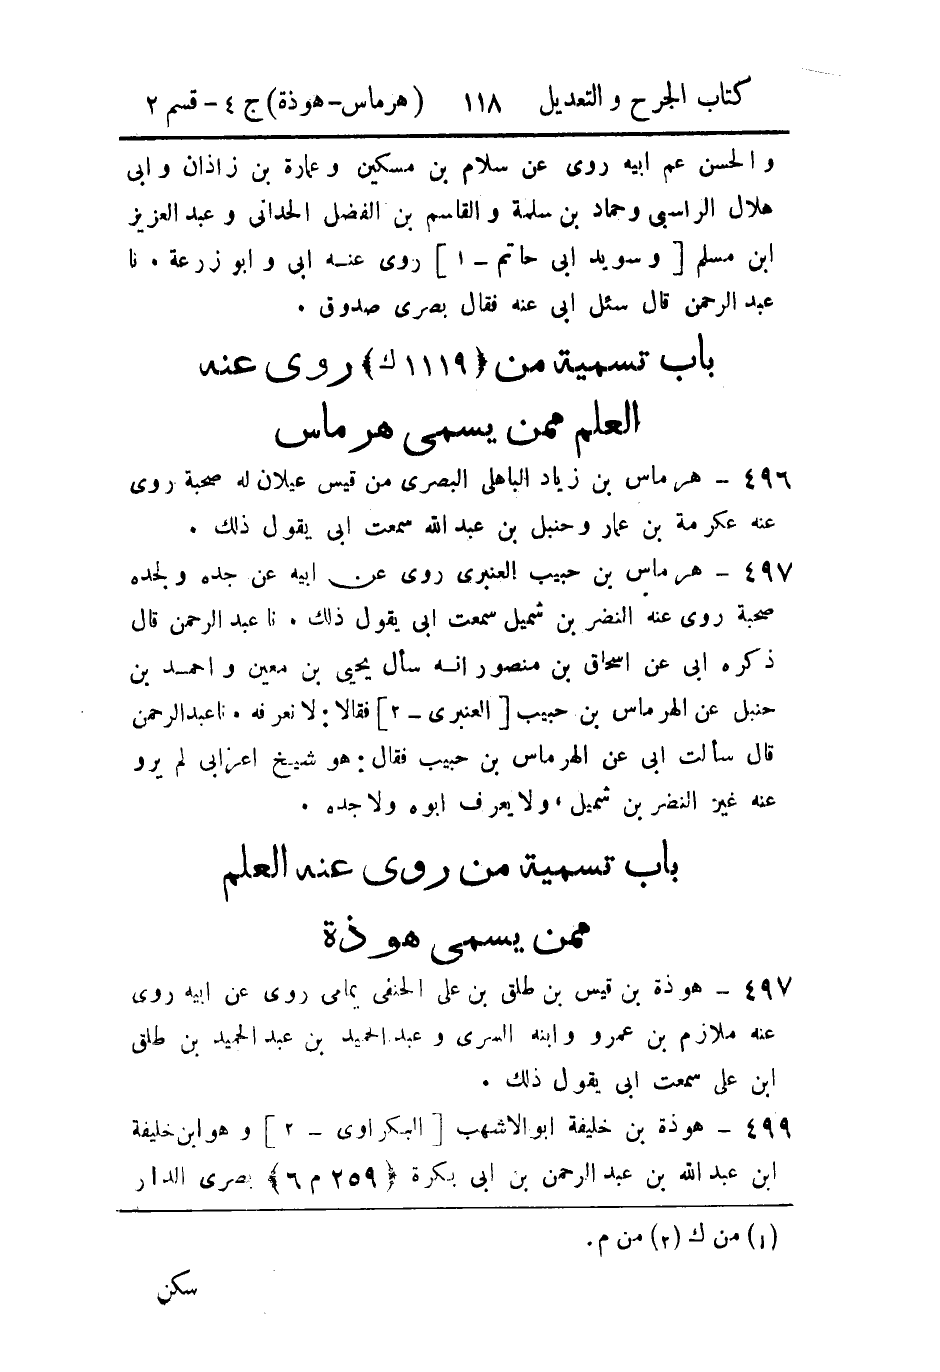 كتاب الجرح و التعديل ١١٨ (هرماس-هوذة) ج ٤ - قسم ٢
و الحسن عم ابيه روى عن سلام بن مسكين و عمارة بن زاذان و ابى
هلال الراسبي و حماد بن سلمة و القاسم بن الفضل الحدانى و عبد العزيز
ابن مسلم [ و سويد ابى حاتم - ١ ] روى عنه ابى و ابو زرعة . نا
عبد الرحمن قال سئل ابى عنه فقال بصرى صدوق .
باب تسمية من ﴿١١١٩ ك﴾ روى عنه
العلم ممن يسمى هرماس
٤٩٦ - هرماس بن زياد الباهلى البصرى من قيس عيلان له صحبة روى
عنه عكرمة بن عمار وحنبل بن عبد الله سمعت ابى يقول ذلك .
٤٩٧ - هرماس بن حبيب العنبرى روى عن ابيه عن جده و لجده
صحبة روى عنه النضر بن شميل سمعت ابى يقول ذلك . نا عبد الرحمن قال
ذكره ابى عن اسحاق بن منصور انه سأل يحيى بن معين و احمد بن
حنبل عن الهرماس بن حبيب [ العنبرى - ٢ ] فقالا : لا نعرفه . نا عبدالرحمن
قال سألت ابى عن الهرماس بن حبيب فقال : هو شيخ اعرابى لم يرو
عنه غير النضر بن شميل ، ولا يعرف ابوه ولا جده .
باب تسمية من روى عنه العلم
ممن يسمى هوذة
٤٩٧ - هوذة بن قيس بن طلق بن على الحنفى يمامى روى عن ابيه روى
عنه ملازم بن عمرو وابنه السرى و عبد الحميد بن عبد الحميد بن طلق
ابن على سمعت ابى يقول ذلك .
٤٩٩ - هوذة بن خليفة ابو الاشهب [ البكراوى - ٢ ] و هو ابن خليفة
ابن عبد الله بن عبد الرحمن بن ابى بكرة ﴿٢٥٩ م ٦﴾ بصرى الدار
(١) من ك (٢) من م .
سكن